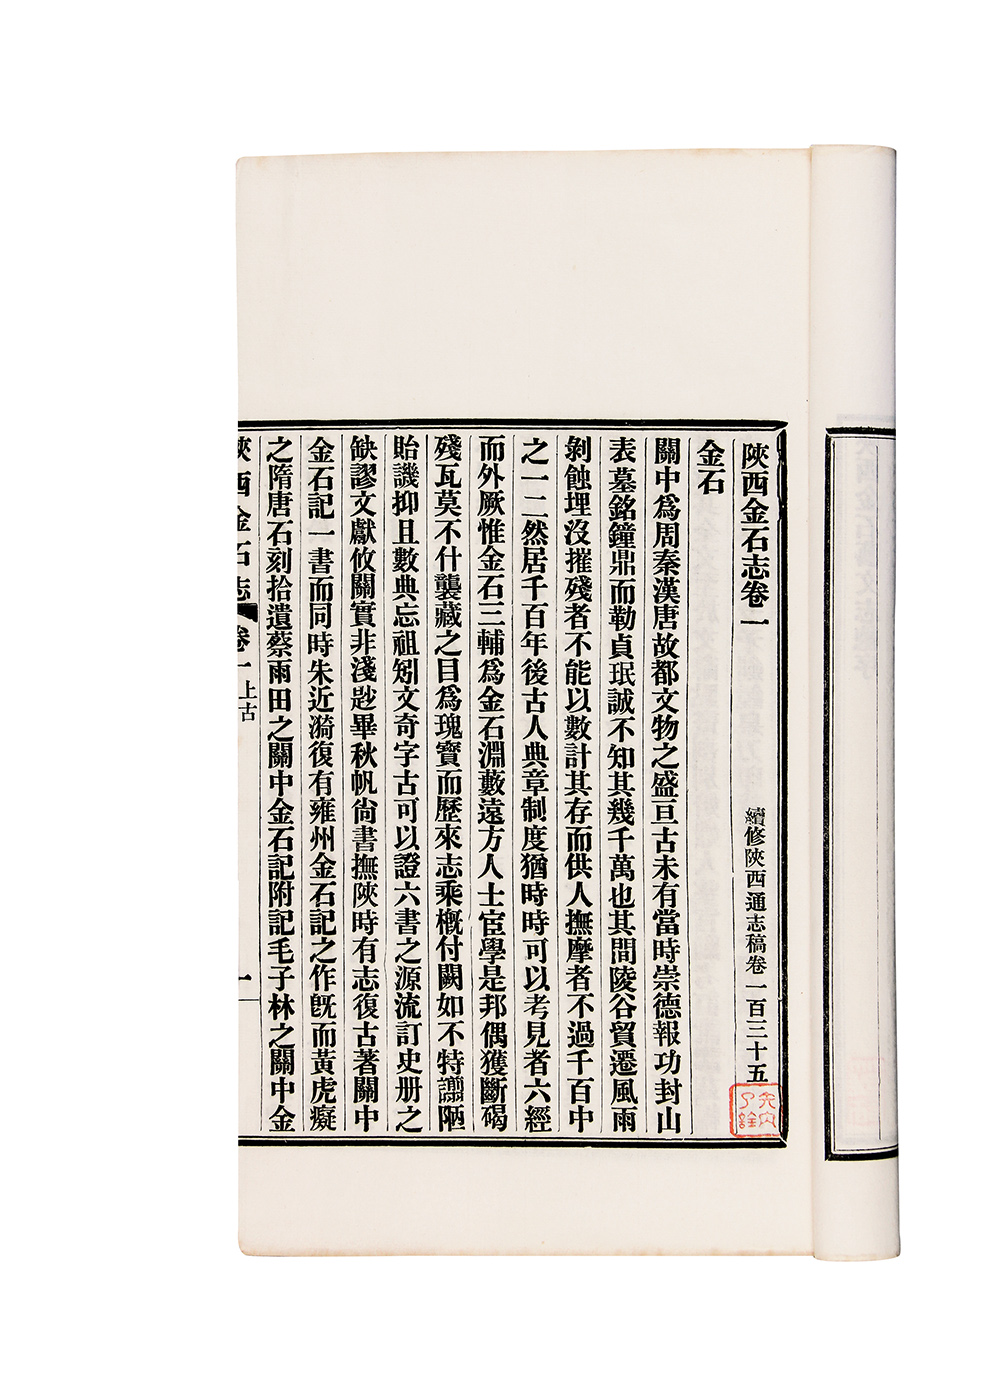 陝西金石志卷一
續修陝西通志稿卷一百三十五
金石
關中爲周秦漢唐故都文物之盛亘古未有當時崇德報功封山
表墓銘鐘鼎而勒貞珉誠不知其幾千萬也其間陵谷貿遷風雨
剝蝕埋沒摧殘者不能以數計其存而供人撫摩者不過千百中
之一二然居千百年後古人典章制度猶時時可以考見者六經
而外厥惟金石三輔爲金石淵藪遠方人士宦學是邦偶獲斷碣
殘瓦莫不什襲藏之目爲瑰寶而歷來志乘槪付闕如不特譾陋
貽譏抑且數典忘祖矧文奇字古可以證六書之源流訂史册之
缺謬文獻攸關實非淺尟畢秋帆尙書撫陝時有志復古著關中
金石記一書而同時朱近漪復有雍州金石記之作旣而黃虎癡
之隋唐石刻拾遺蔡雨田之關中金石記附記毛子林之關中金
陝西金石志 卷一 上古 一